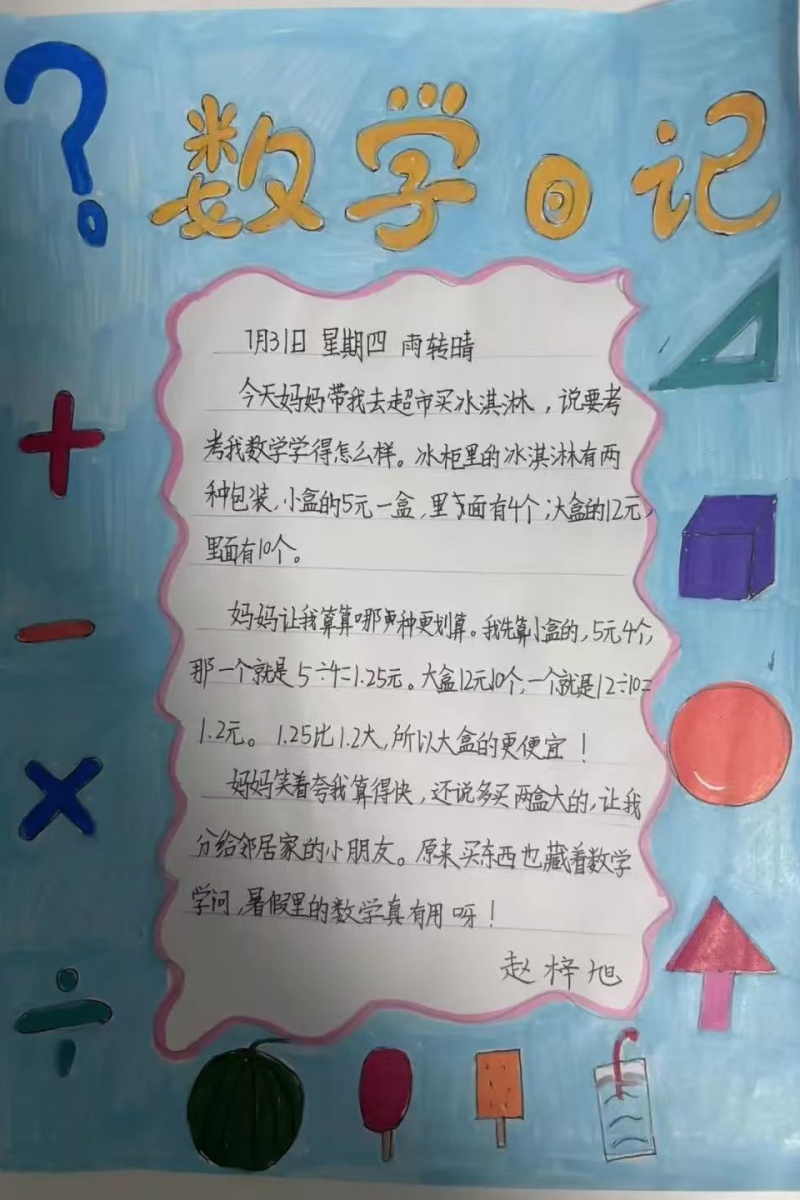 数学日记
7月31日 星期四 雨转晴
今天妈妈带我去超市买冰淇淋，说要考
考我数学学得怎么样。冰柜里的冰淇淋有两
种包装，小盒的5元一盒，里面有4个；大盒的12元，
里面有10个。
妈妈让我算算哪种更划算。我先算小盒的，5元4个，
那一个就是5÷4=1.25元。大盒12元10个，一个就是12÷10=
1.2元。1.25比1.2大，所以大盒的更便宜！
妈妈笑着夸我算得快，还说多买两盒大的，让我
分给邻居家的小朋友。原来买东西也藏着数学
学问，暑假里的数学真有用呀！
赵梓旭